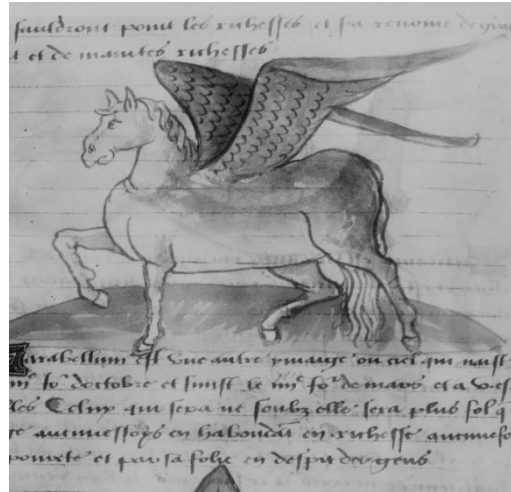 fauldront point les richesses et sa renome de gra
t et de maintes richesses
arabellum est une autre ymaige ou ciel qui naist
iiiᵉ io doctobre et finist le iiiᵉ io de mars et a
les Celuy qui sera ne soubz elle sera plus fol q
ge aucunesfoys en habondāt en richesse aucunesfo
povrete et par sa folie en despit des gens